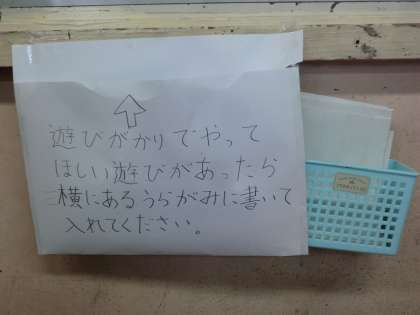 遊びがかりでやって
ほしい遊びがあったら
横にあるうらがみに書いて
入れてください。